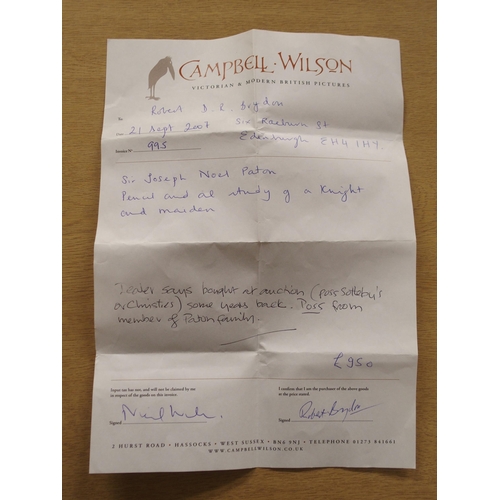 CAMPBELL · WILSON
VICTORIAN & MODERN BRITISH PICTURES
To Robert D. R. Brydon
Date 21 Sept 2007 Six Raeburn St
Invoice Nº 995 Edenburgh EH4 1HY.
Sir Joseph Noel Paton
Pencil and oil study of a Knight
and maiden
Dealer says bought at auction (poss Sotheby's
or Christies) some years back. Poss from
member of Paton family.
£950
Input tax has not, and will not be claimed by me
in respect of the goods on this invoice.
I confirm that I am the purchaser of the above goods
at the price stated.
Signed
Signed Robert Brydon
2 HURST ROAD · HASSOCKS · WEST SUSSEX · BN6 9NJ · TELEPHONE 01273 843661
WWW.CAMPBELLWILSON.CO.UK